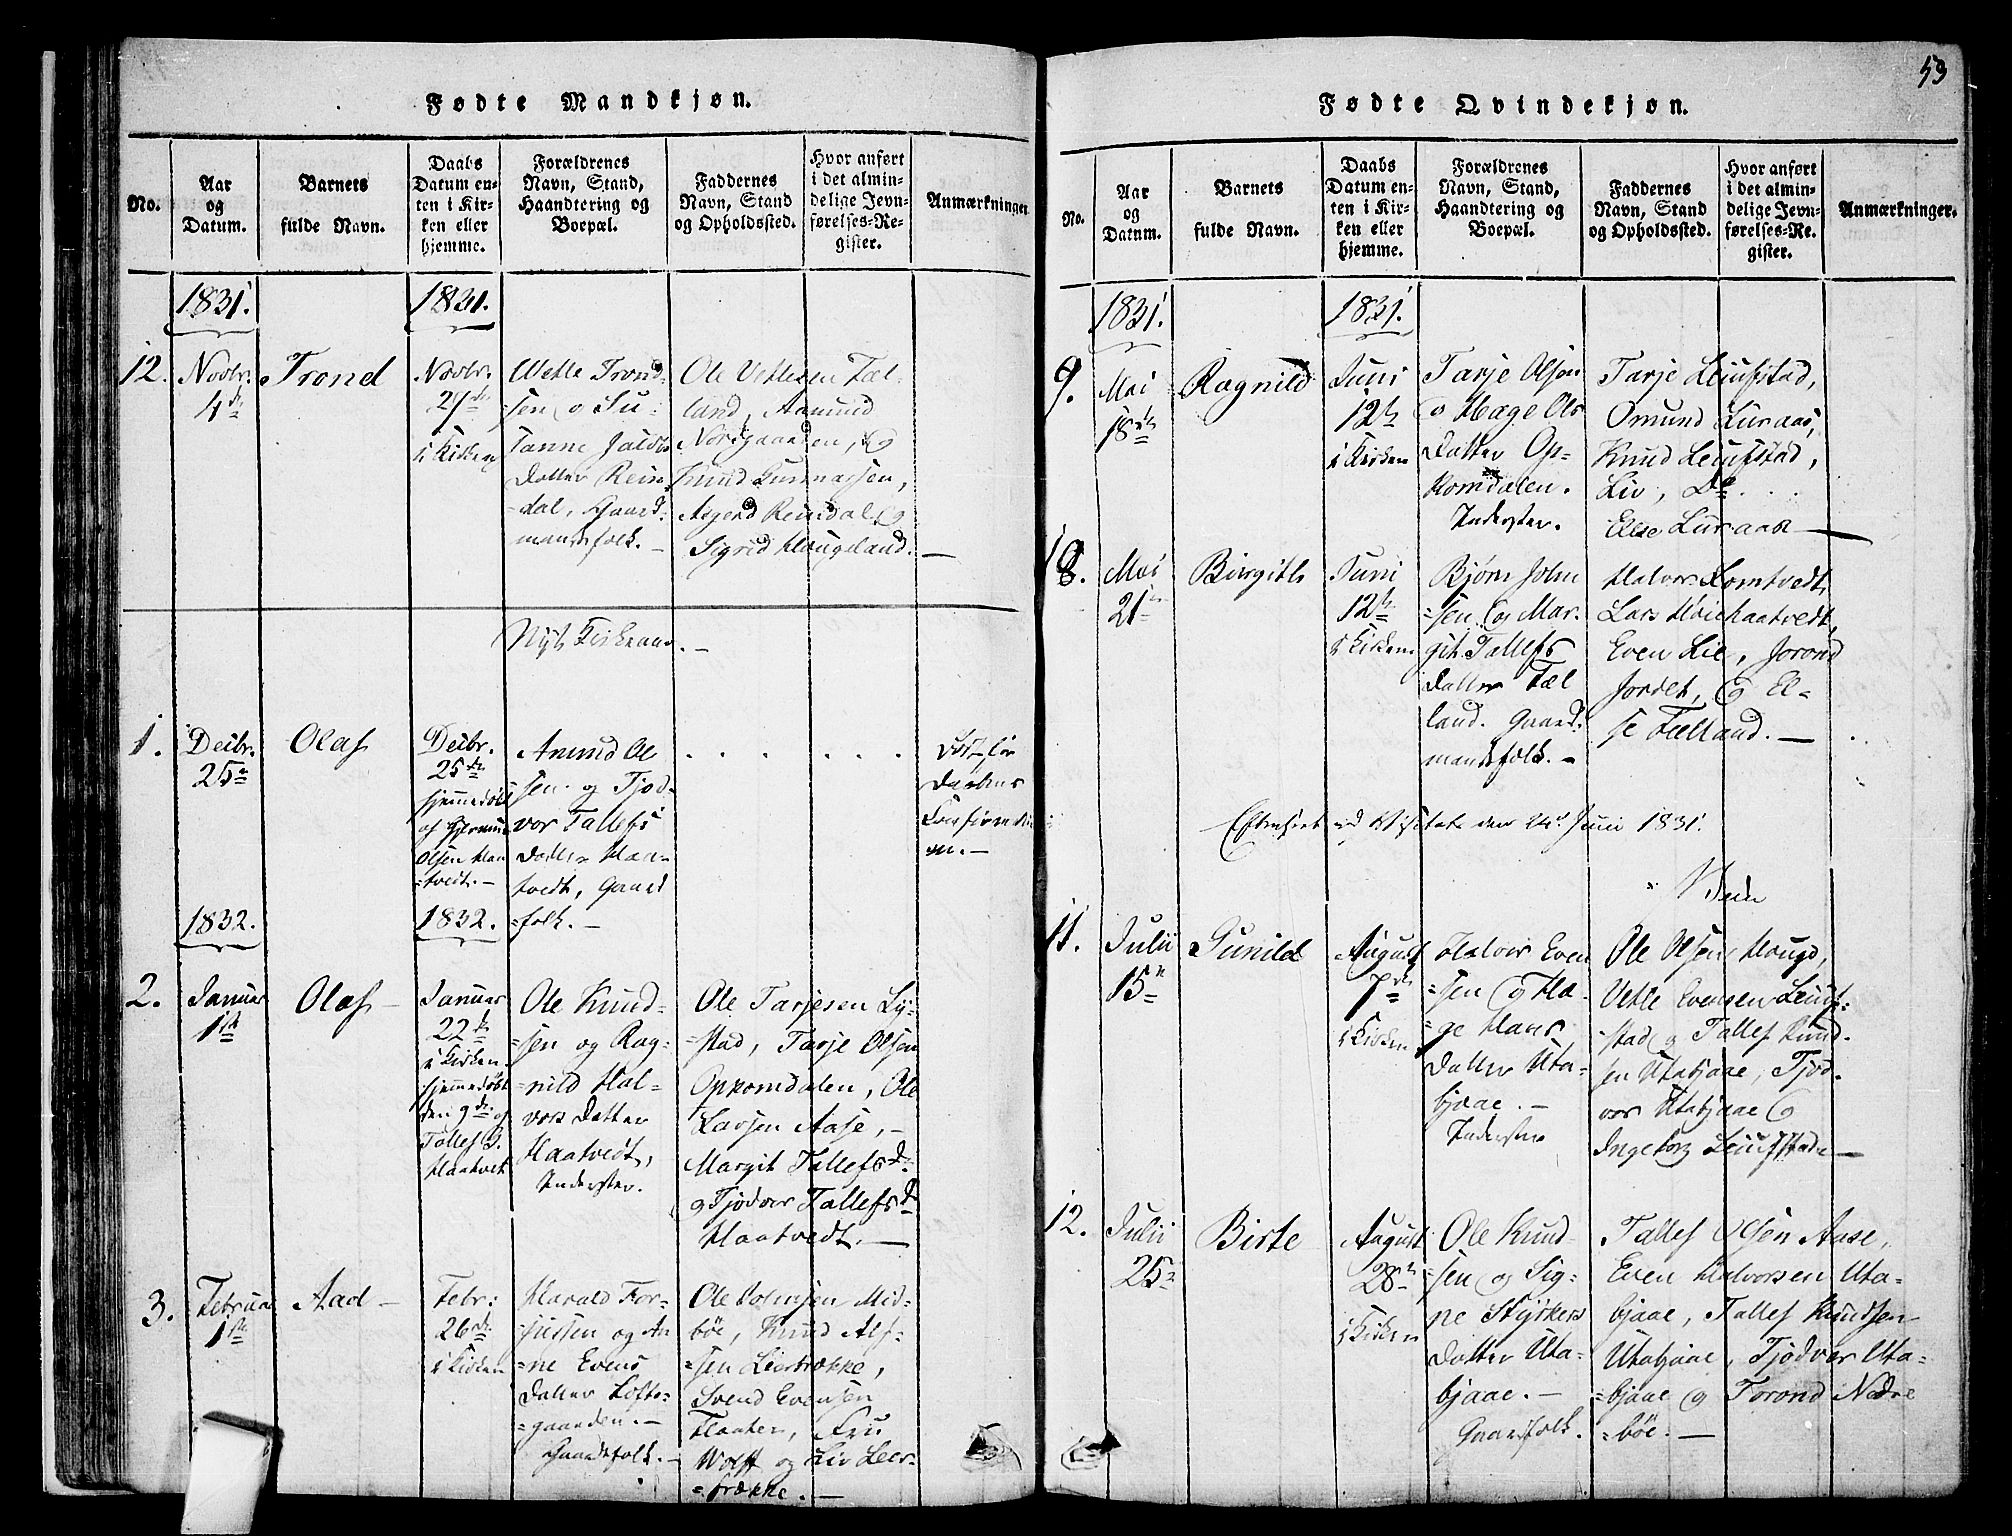 Fødte Mandkjøn.
No.
Aar
og
Datum.
Barnets
fulde Navn.
Daabs
Datum en-
ten i Kir-
ken eller
hjemme.
Forældrenes
Navn, Stand,
Haandtering og
Boepæl.
Faddernes
Navn, Stand
og Opholdssted.
Hvor anført
i det almin-
delige Jevn-
førelses-Re-
gister.
Anmærkninger.
1831.
1831.
12.
Novbr.
4de
Trond
Novbr.
27de
i Kirken
Wetle Trond-
sen og Su-
sanne Jacobs
Datter Rein-
dal, Gaard-
mandsfolk.
Ole Vetlesen Fæl-
land, Aamund
Nordgaarden, og
Knud Gunnarsen,
Asgerd Reindal og
Sigrid Hougeland.
Nyt Kirkeaar.
1.
Decbr.
25de
Olaf
Decbr.
25de
hjemmedøbt
af
Olsen Haa-
tvedt.
Amund Ol-
sen og Tjod-
vor Tallefs
Datter Haa-
tvedt, Gaard
folk.
død før
Daabens
Confirmatio-
n.
1832.
1832.
2.
Januar
1ste
Olaf
Januar
22de
i Kirken
hjemmedøbt
den 9de af
Tallef G.
Haatvet
Ole Knud-
sen og Rag-
nild Hal-
vors Datter
Haatvedt,
Inderster.
Ole Tarjesen Ly-
stad, Tarje Olsen
Opkomdalen, Ole
Larsen Aase,
Margit Tallefs D.
og Tjodver Tallefs D
Haatvedt.
3.
Februar
1ste
Aad
Febr:
26de
i Kirken
Harald For-
sen og An-
ne Evens
Datter Lofts-
gaarden.
Gaardfolk.
Ole Mid-
bøe, Knud Alf-
sen Leerbrække,
Svend Evensen
Flaaten, Fru
Wolff og Liv Leer-
brække.
53
Fødte Qvindekjøn.
No.
Aar
og
Datum.
Barnets
fulde Navn.
Daabs
Datum en-
ten i Kir-
ken eller
hjemme.
Forældrenes
Navn, Stand,
Haandtering og
Boepæl.
Faddernes
Navn, Stand
og Opholdssted.
Hvor anført
i det almin-
delige Jevn-
førelses-Re-
gister.
Anmærkninger.
1831.
1831.
9.
Mai
18de
Ragnild
Juni
12te
i Kirken
Tarje Olsen
og Hæge Ols
Datter Op-
komdalen.
Inderster.
Tarje Leiufstad,
Omund Luraas,
Knud Leiufstad,
Liv, Do.
Else Luraas
10.
Mai
21de
Birgith
Juni
12te
i Kirken
Bjørn John
sen og Mar-
git Tallefs
Datter Fæl
land. Gaard-
mandsfolk.
Halvor Lomtvedt,
Lars Høiehaatvedt,
Even Lie, Jorond
Jordet, og El-
se Fælland.
Efterseet ved Visitats den 24de Juni 1831.
11.
Julii
15de
Gunild
August
7de
i Kirken
Halvor Even
sen og Hæ-
ge Hans
Datter Uta-
bjaae.
Inderster
Ole Olsen Hougd,
Vetle Evensen Leiuf-
stad og Tallef Knud-
sen Utabjaae, Tjod-
vor Utabjaae og
Ingeborg Leiufstad
12.
Julii
25de
Birte
August
28de
i Kirken
Ole Knud-
sen og Sig-
ne Styrkers
Datter Uta-
bjaae.
Gaardfolk.
Tallef Olsen Aase,
Even Halvorsen Uta-
bjaae, Tallef Knudsen
Utabjaae, Tjodver Uta-
bjaae og Torond Nedre
bøe.